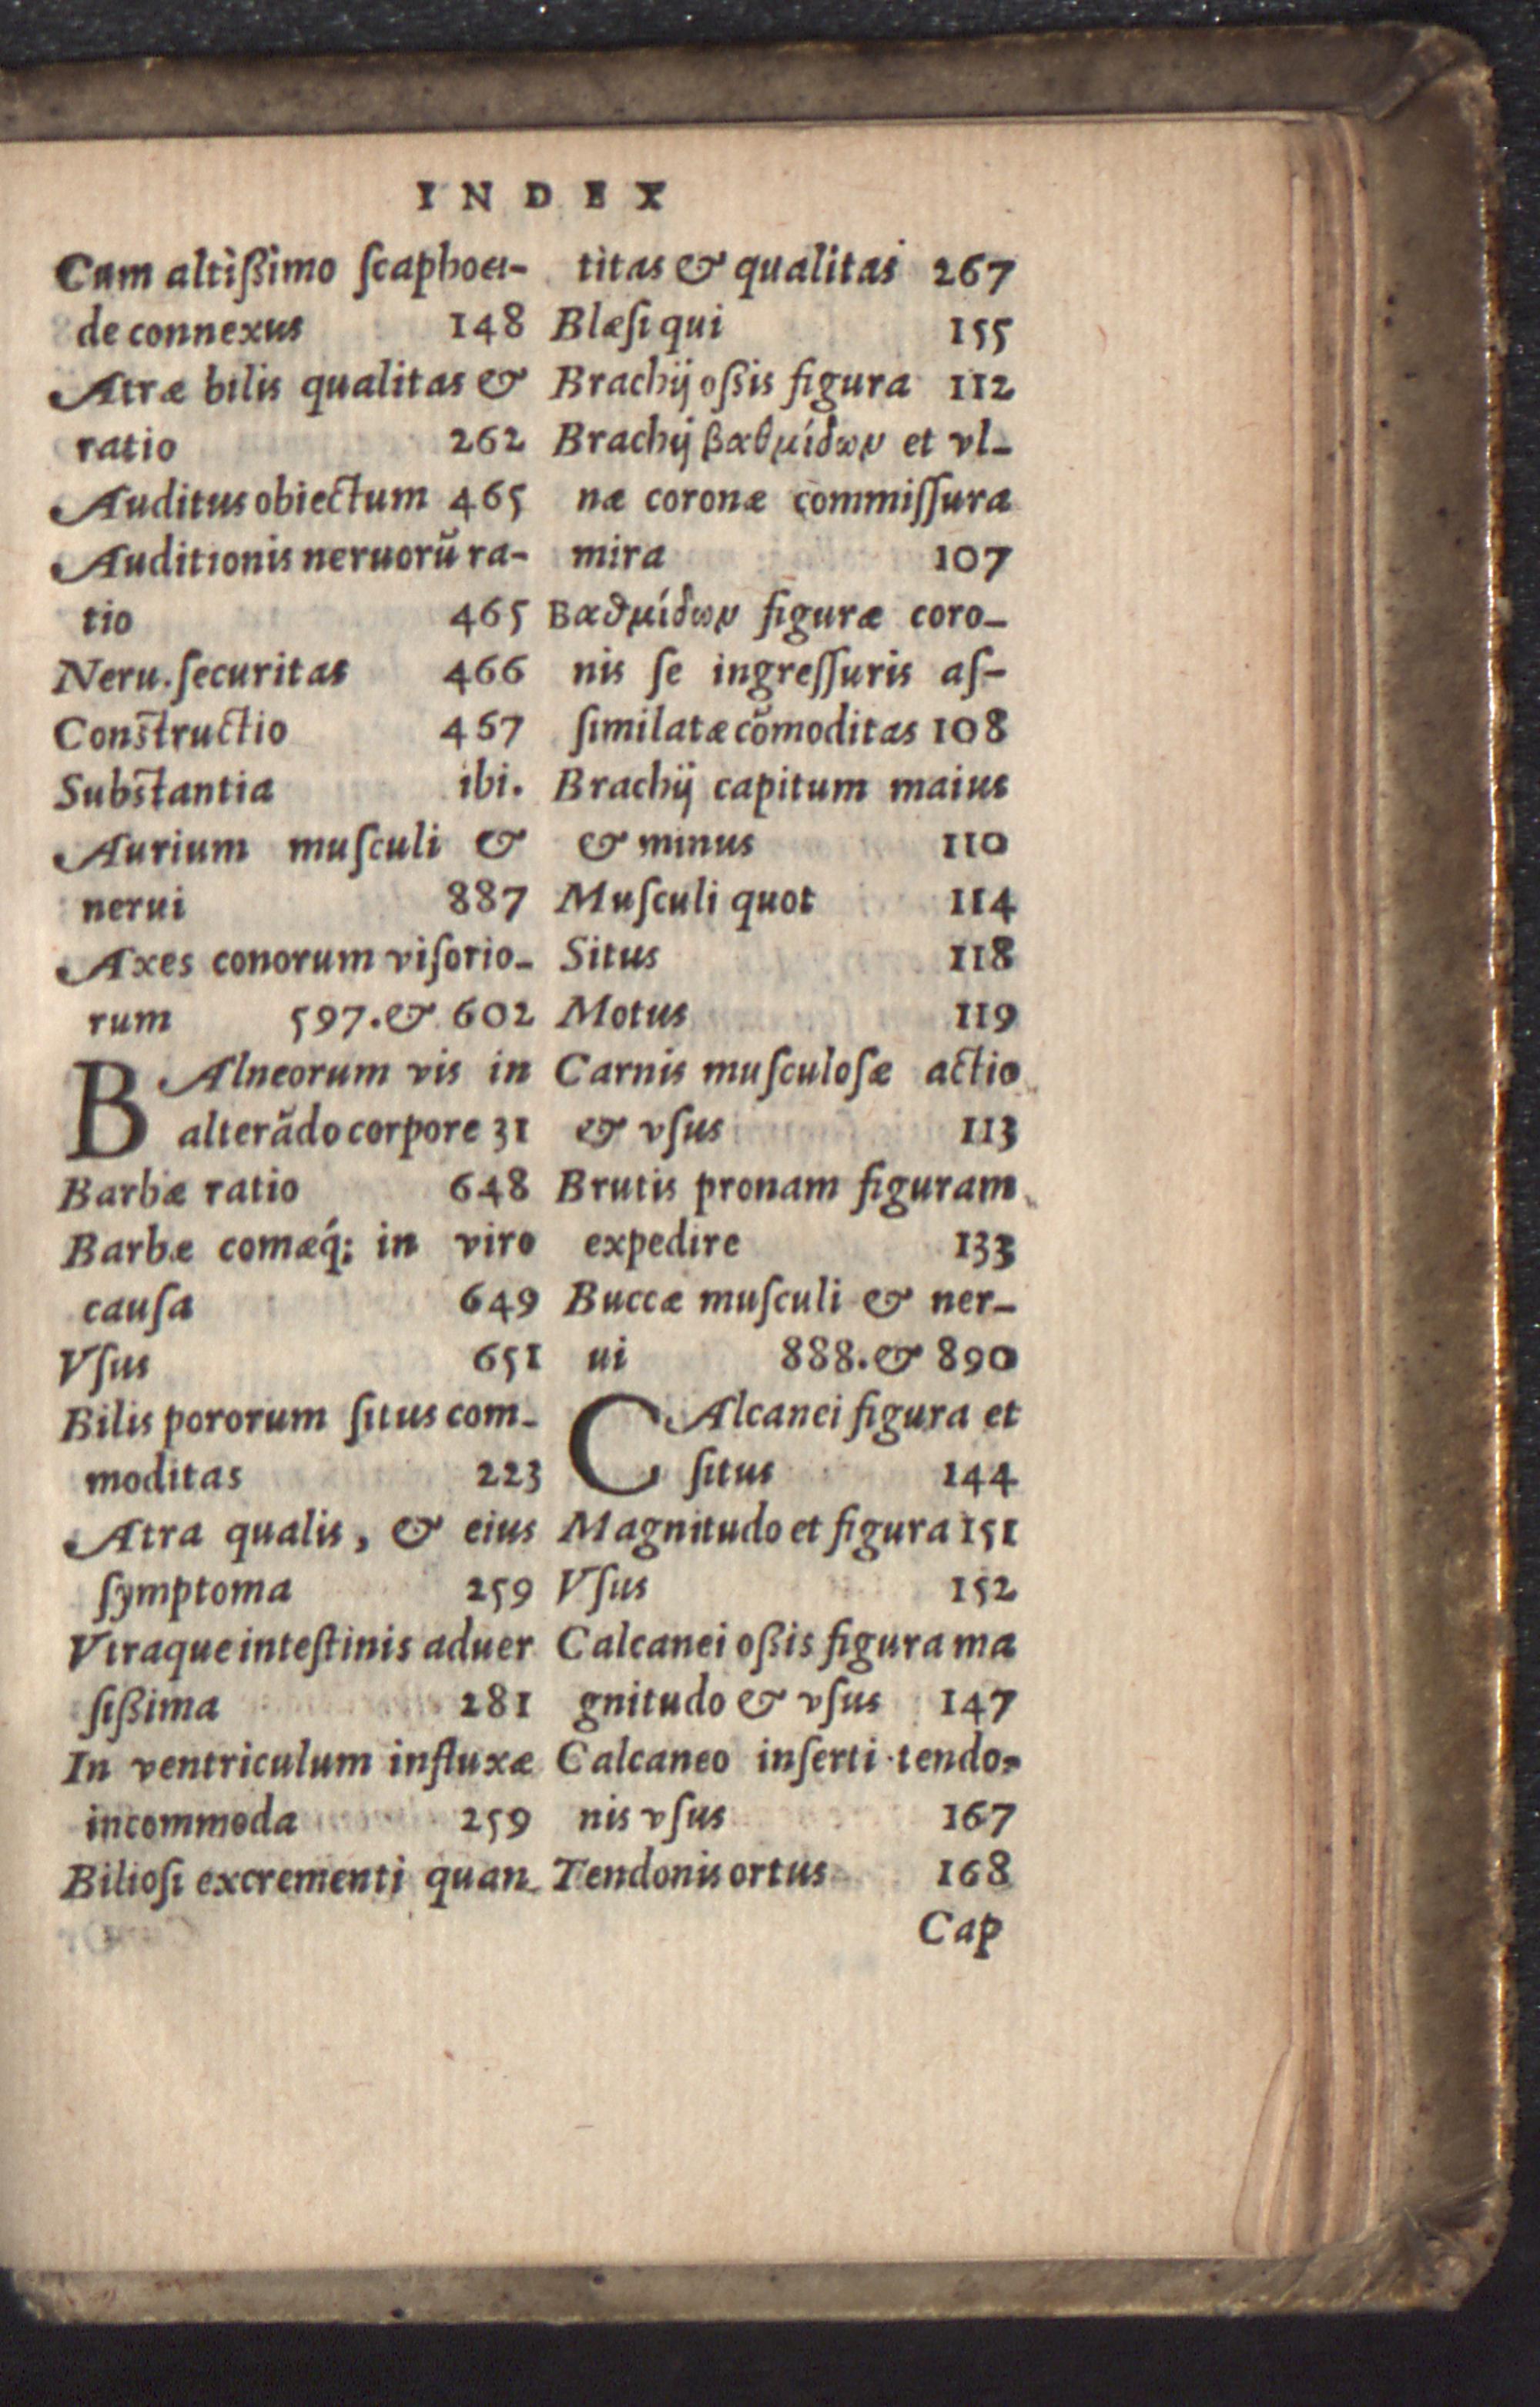 INDEX
Cum altißimo ſcaphoei-
de connexus 148
Atræ bilis qualitas &
ratio 262
Auditus obiectum 465
Auditionis neruorū ra-
tio 465
Neru. ſecuritas 466
Constructio 467
Substantia ibi.
Aurium muſculi &
nerui 887
Axes conorum viſorio-
rum 597. & 602
BAlneorum vis in
alterādo corpore 31
Barbæ ratio 648
Barbæ comæq́; in viro
cauſa 649
Vſus 651
Bilis pororum ſitus com-
moditas 223
Atra qualis, & eius
ſymptoma 259
Vtraque inteſtinis aduer
ſißima 281
In ventriculum influxæ
incommoda 259
Bilioſi excrementi quan-
titas & qualitas 267
Blæſi qui 155
Brachij oßis figura 112
Brachij βαθμίδων et vl-
næ coronæ commiſſura
mira 107
Βαθμίδων figuræ coro-
nis ſe ingreſſuris aſ-
ſimilatæ cōmoditas 108
Brachij capitum maius
& minus 110
Muſculi quot 114
Situs 118
Motus 119
Carnis muſculoſæ actio
& vſus 113
Brutis pronam figuram
expedire 133
Buccæ muſculi & ner-
ui 888. & 890
CAlcanei figura et
ſitus 144
Magnitudo et figura 151
Vſus 152
Calcanei oßis figura ma
gnitudo & vſus 147
Calcaneo inſerti tendo-
nis vſus 167
Tendonis ortus 168
Cap